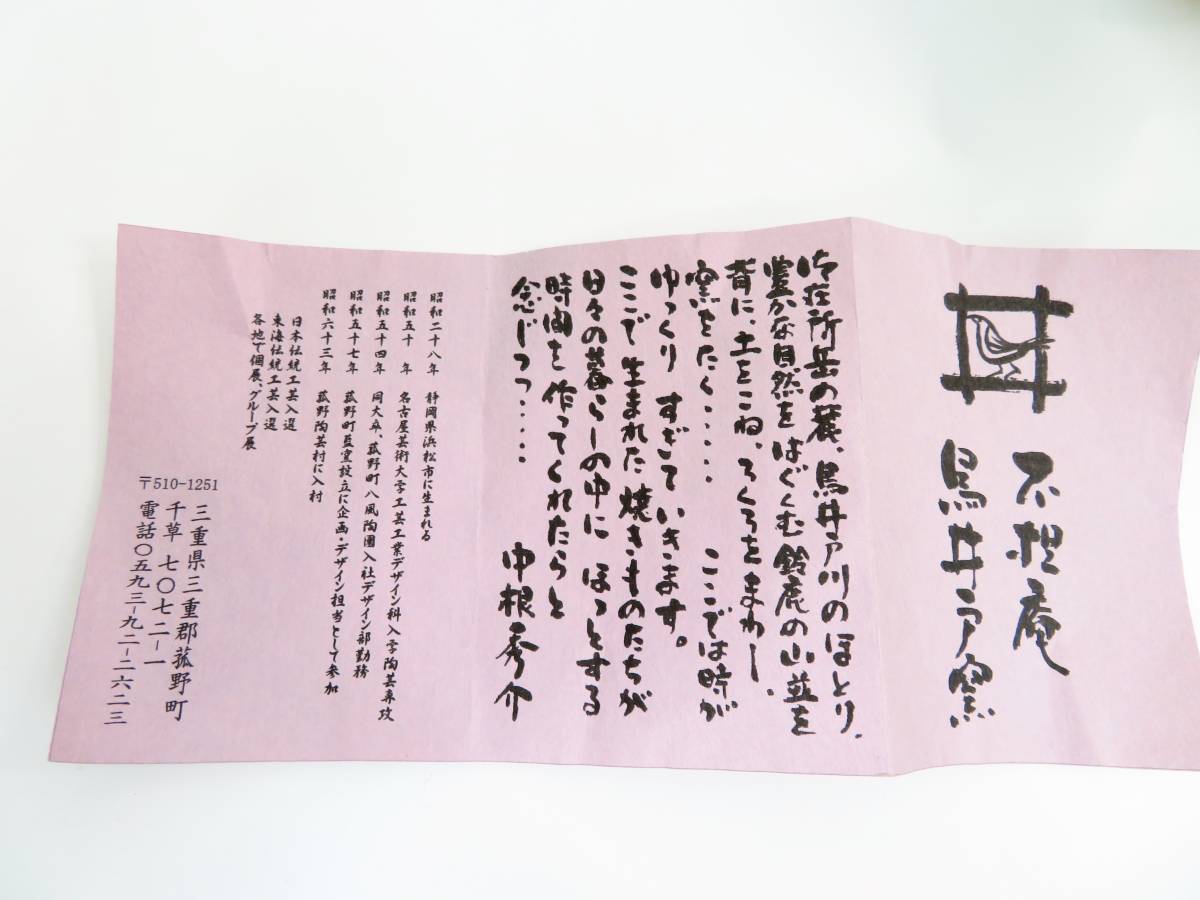 不担庵
鳥井戸窯
御在所岳の麓、鳥井戸川のほとり、
豊かな自然をはぐくむ鈴鹿の山並を
背に、土をこね、ろくろをまわし、
窯をたく‥‥ ここでは時が
ゆっくり すぎていきます。
ここで生まれた焼きものたちが
日々の暮らしの中に ほっとする
時間を作ってくれたらと
念じつつ‥‥
中根秀介
昭和二十八年 静岡県浜松市に生まれる
昭和五十 年 名古屋芸術大学工芸工業デザイン科入学陶芸専攻
昭和五十四年 同大卒、菰野町八風陶園入社デザイン部勤務
昭和五十七年 菰野町藍窯設立に企画・デザイン担当として参加
昭和六十三年 菰野陶芸村に入村
日本伝統工芸入選
東海伝統工芸入選
各地で個展、グループ展
〒510-1251
三重県三重郡菰野町
千草 七〇七二−一
電話〇五九三−九二−二六二三